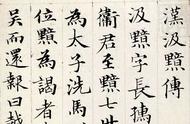 漢汲黯傳
汲黯字長孺
衛君至黯七世
為太子洗馬
位黯為謁者
吳而還報曰越